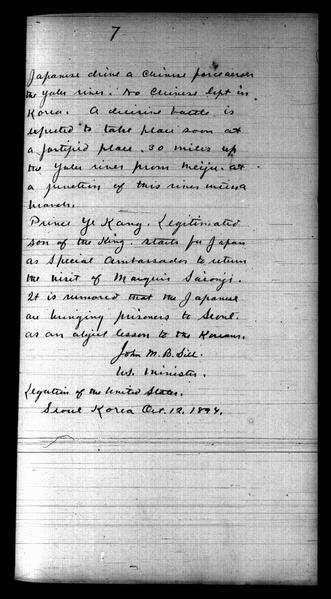 7
Japanese drive a Chinese force across
the Yalu river. No Chinese left in
Korea. A decisive battle is
expected to take place soon at
a fortified place. 30 miles up
the Yalu river from Weiju. at
a junction of this river with a
branch.
Prince Ye Kang. Legitimated
son of the King. starts for Japan
as Special Ambassador to return
the visit of Marquis Saionji.
It is rumored that the Japanese
are bringing prisoners to Seoul.
as an object lesson to the Koreans.
John M. B. Sill.
U.S. Minister.
Legation of the United States.
Seoul Korea Oct. 12. 1894.